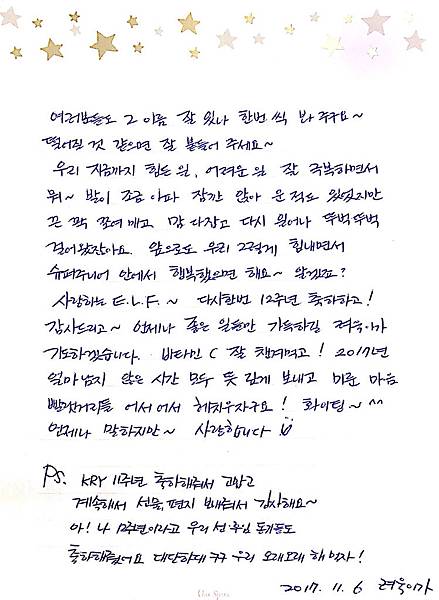 여러분들도 그 이름 잘 있나 한번 씩 봐 주구요~
떨어질 것 같으면 잘 붙들어 주세요~
우리 지금까지 힘든 일, 어려운 일 잘 극복하면서
뭐~ 발이 조금 아파 잠깐 앉아 운 적도 있었지만
끈 꽉 쪼여 메고 맘 다잡고 다시 일어나 뚜벅뚜벅
걸어왔잖아요. 앞으로도 우리 그렇게 힘내면서
슈퍼주니어 안에서 행복했으면 해요~ 알겠죠?
사랑하는 E.L.F.~ 다시한번 12주년 축하하고!
감사드리고~ 언제나 좋은 일들만 가득하길 려욱이가
기도하겠습니다. 비타민 C 잘 챙겨먹고! 2017년
얼마 남지 않은 시간 모두 뜻 깊게 보내고 미룬 마음
빨랫거리들 어서어서 해치우자구요! 화이팅~ ^^
언제나 말하지만~ 사랑합니다
Ps. KRY 11주년 축하해줘서 고맙고
계속해서 선물, 편지 보내줘서 감사해요~
아! 나 12주년이라고 우리 선·후임 동기들도
축하해줬어요 대단하대 ㅋㅋ 우리 오래오래 해먹자!
2017. 11. 6 려욱이가